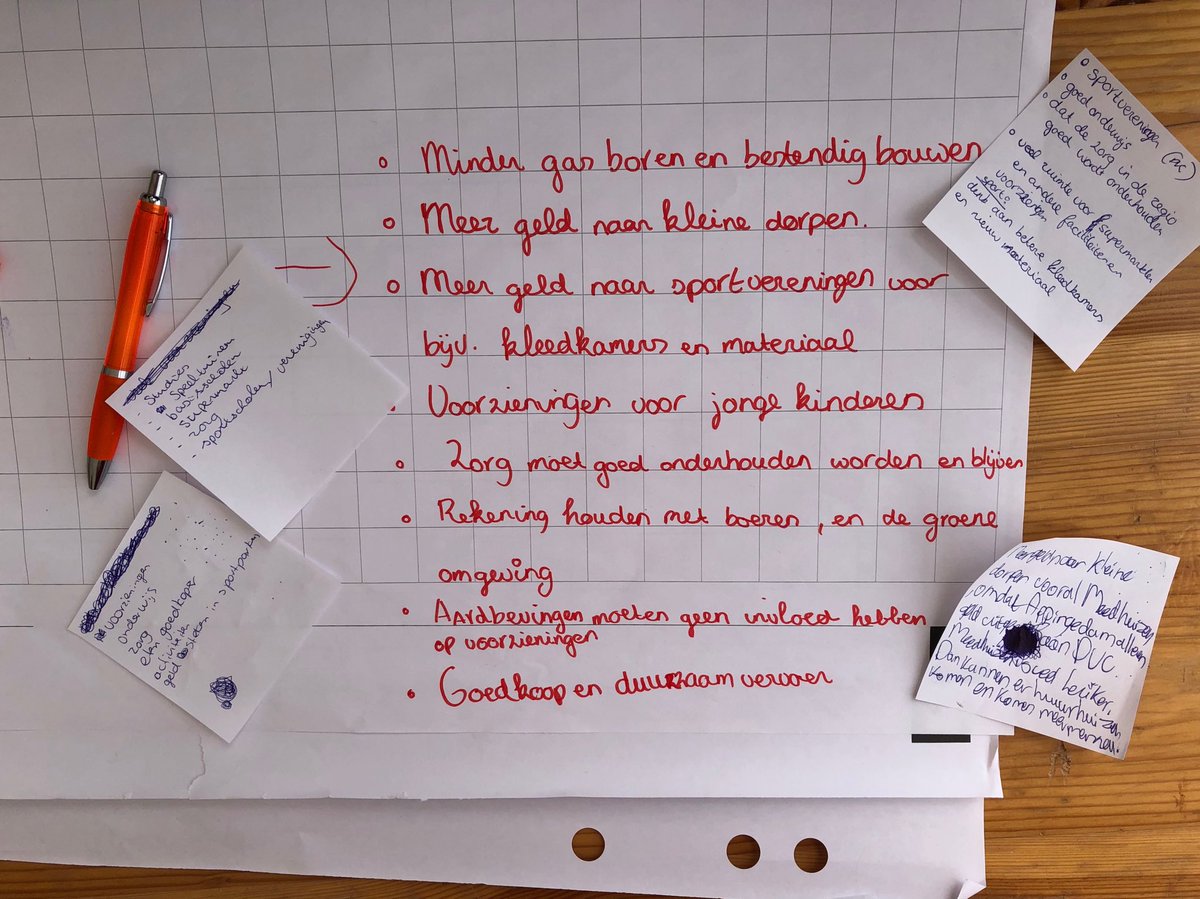 • Minder gas boren en bestendig bouwen
• Meer geld naar kleine dorpen.
• Meer geld naar sportvereningen voor
bijv. kleedkamers en materiaal
• Voorzieningen voor jonge kinderen
• Zorg moet goed onderhouden worden en blijven
• Rekening houden met boeren, en de groene
omgeving
• Aardbevingen moeten geen invloed hebben
op voorzieningen
• Goedkoop en duurzaam vervoer
- Studies
- speeltuinen
- basisscholen
- supermarkt
- zorg
- sportscholen/verenigingen
voorzieningen
onderwijs
zorg
eten goedkoper
activiteiten
geld besteden in sportparken
• sportvereningen
• goed onderwijs
• dat de zorg in de regio
goed wordt onderhouden
• veel ruimte voor supermarkten
en andere faciliteiten
voorzieningen
sport:
denk aan betere kleedkamers
en nieuw materiaal
Meer geld naar kleine
dorpen vooral Meedhuizen
omdat Appingedam alleen
geld
aan DUC.
Meedhuizen
Dan kunnen er huurhuizen
komen en komen meer mensen.